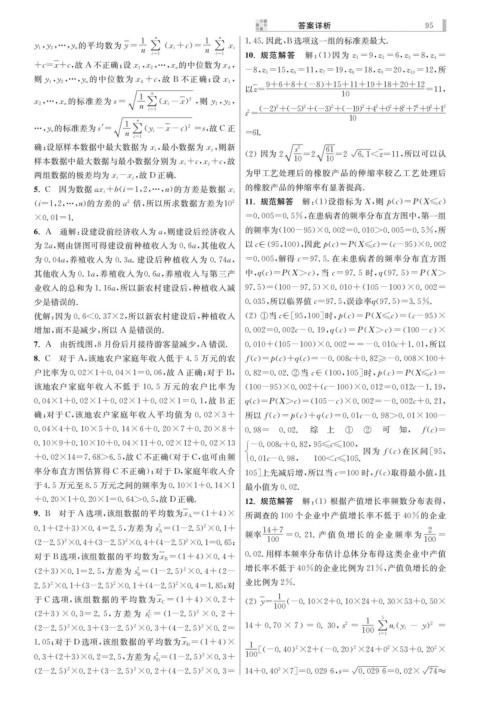 答案详解 95
y₁,y₂,…,yₙ的平均数为 y̅=1/n ∑(i=1,n) (xᵢ+c)=1/n ∑(i=1,n) xᵢ
+c=x̅+c,故 A 不正确;设 x₁,x₂,…,xₙ的中位数为 xₖ,
则 y₁,y₂,…,yₙ的中位数为 xₖ+c,故 B 不正确;设 x₁,
x₂,…,xₙ的标准差为 s=√(1/n ∑(i=1,n) (xᵢ-x̅)²),则 y₁,y₂,
…,yₙ的标准差为 s′=√(1/n ∑(i=1,n) (yᵢ-x̅-c)²)=s,故 C 正
确;设原样本数据中最大数据为 xᵢ,最小数据为 xⱼ,则新
样本数据中最大数据与最小数据分别为 xᵢ+c,xⱼ+c,故
两组数据的极差均为 xᵢ-xⱼ,故 D 正确.
5. C 因为数据 axᵢ+b(i=1,2,…,n)的方差是数据 xᵢ
(i=1,2,…,n)的方差的 a² 倍,所以所求数据方差为10²
×0.01=1.
6. A 通解:设建设前经济收入为 a,则建设后经济收入
为 2a,则由饼图可得建设前种植收入为 0.6a,其他收入
为 0.04a,养殖收入为 0.3a. 建设后种植收入为 0.74a,
其他收入为 0.1a,养殖收入为0.6a,养殖收入与第三产
业收入的总和为 1.16a,所以新农村建设后,种植收入减
少是错误的.
优解:因为 0.6<0.37×2,所以新农村建设后,种植收入
增加,而不是减少,所以 A 是错误的.
7. A 由折线图,8 月份后月接待游客量减少,A 错误.
8. C 对于 A,该地农户家庭年收入低于 4.5 万元的农
户比率为 0.02×1+0.04×1=0.06,故 A 正确;对于 B,
该地农户家庭年收入不低于 10.5 万元的农户比率为
0.04×1+0.02×1+0.02×1+0.02×1=0.1,故 B 正
确;对于 C,该地农户家庭年收入平均值为 0.02×3+
0.04×4+0.10×5+0.14×6+0.20×7+0.20×8+
0.10×9+0.10×10+0.04×11+0.02×12+0.02×13
+0.02×14=7.68>6.5,故 C 不正确(对于 C,也可由频
率分布直方图估算得 C 不正确);对于 D,家庭年收入介
于 4.5 万元至 8.5 万元之间的频率为 0.10×1+0.14×1
+0.20×1+0.20×1=0.64>0.5,故 D 正确.
9. B 对于 A 选项,该组数据的平均数为x̅_A=(1+4)×
0.1+(2+3)×0.4=2.5,方差为 s²_A=(1-2.5)²×0.1+
(2-2.5)²×0.4+(3-2.5)²×0.4+(4-2.5)²×0.1=0.65;
对于 B 选项,该组数据的平均数为x̅_B=(1+4)×0.4+
(2+3)×0.1=2.5,方差为 s²_B=(1-2.5)²×0.4+(2-
2.5)²×0.1+(3-2.5)²×0.1+(4-2.5)²×0.4=1.85;对
于 C 选项,该组数据的平均数为x̅_C=(1+4)×0.2+
(2+3)×0.3=2.5,方差为 s²_C=(1-2.5)²×0.2+
(2-2.5)²×0.3+(3-2.5)²×0.3+(4-2.5)²×0.2=
1.05;对于 D 选项,该组数据的平均数为x̅_D=(1+4)×
0.3+(2+3)×0.2=2.5,方差为 s²_D=(1-2.5)²×0.3+
(2-2.5)²×0.2+(3-2.5)²×0.2+(4-2.5)²×0.3=
1.45. 因此,B 选项这一组的标准差最大.
10. 规范解答 解:(1)因为 z₁=9,z₂=6,z₃=8,z₄=
-8,z₅=15,z₆=11,z₇=19,z₈=18,z₉=20,z₁₀=12,所
以z̅=(9+6+8+(-8)+15+11+19+18+20+12)/10=11,
s²=((-2)²+(-5)²+(-3)²+(-19)²+4²+0²+8²+7²+9²+1²)/10
=61.
(2)因为 2√(s²/10)=2√(61/10)=2√6.1<z̅=11,所以可以认
为甲工艺处理后的橡胶产品的伸缩率较乙工艺处理后
的橡胶产品的伸缩率有显著提高.
11. 规范解答 解:(1)设指标为 X,则 p(c)=P(X≤c)
=0.005=0.5%,在患病者的频率分布直方图中,第一组
的频率为(100-95)×0.002=0.010>0.005=0.5%,所
以 c∈(95,100),因此 p(c)=P(X≤c)=(c-95)×0.002
=0.005,解得 c=97.5. 在未患病者的频率分布直方图
中,q(c)=P(X>c),当 c=97.5 时,q(97.5)=P(X>
97.5)=(100-97.5)×0.010+(105-100)×0.002=
0.035,所以临界值 c=97.5,误诊率q(97.5)=3.5%.
(2)①当 c∈[95,100]时,p(c)=P(X≤c)=(c-95)×
0.002=0.002c-0.19,q(c)=P(X>c)=(100-c)×
0.010+(105-100)×0.002=-0.010c+1.01,所以
f(c)=p(c)+q(c)=-0.008c+0.82≥-0.008×100+
0.82=0.02. ②当 c∈(100,105]时,p(c)=P(X≤c)=
(100-95)×0.002+(c-100)×0.012=0.012c-1.19,
q(c)=P(X>c)=(105-c)×0.002=-0.002c+0.21,
所以 f(c)=p(c)+q(c)=0.01c-0.98>0.01×100-
0.98=0.02. 综上①②可知, f(c)=
{-0.008c+0.82, 95≤c≤100,
0.01c-0.98, 100<c≤105. 因为 f(c)在区间[95,
105]上先减后增,所以当 c=100 时,f(c)取得最小值,且
最小值为 0.02.
12. 规范解答 解:(1)根据产值增长率频数分布表得,
所调查的 100 个企业中产值增长率不低于 40%的企业
频率(14+7)/100=0.21. 产值负增长的企业频率为 2/100=
0.02. 用样本频率分布估计总体分布得这类企业中产值
增长率不低于 40%的企业比例为 21%,产值负增长的企
业比例为 2%.
(2) y̅=1/100(-0.10×2+0.10×24+0.30×53+0.50×
14+0.70×7)=0.30, s²=1/100 ∑(i=1,5) nᵢ(yᵢ-y̅)²=
1/100[(-0.40)²×2+(-0.20)²×24+0²×53+0.20²×
14+0.40²×7]=0.029 6,s=√0.029 6=0.02×√74≈